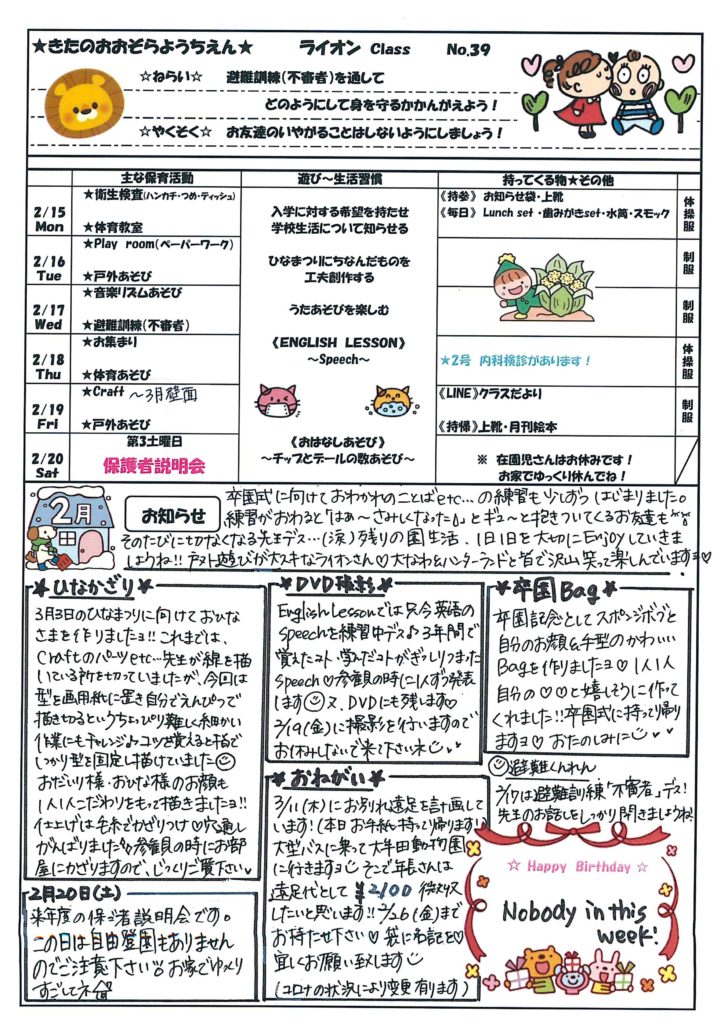 ★きたのおおぞらようちえん★ ライオン Class No.39
☆ねらい☆ 避難訓練(不審者)を通して
どのようにして身を守るかかんがえよう！
☆やくそく☆ お友達のいやがることはしないようにしましょう！
主な保育活動 遊び～生活習慣 持ってくる物★その他
2/15 Mon
★衛生検査(ハンカチ・つめ・ティッシュ)
★体育教室
入学に対する希望を持たせ
学校生活について知らせる
《持参》 お知らせ袋・上靴
《毎日》 Lunch set ・歯みがきset・水筒・スモック
体操服
2/16 Tue
★Play room(ペーパーワーク)
★戸外あそび
ひなまつりにちなんだものを
工夫創作する
制服
2/17 Wed
★音楽リズムあそび
★避難訓練(不審者)
うたあそびを楽しむ
制服
2/18 Thu
★お集まり
★体育あそび
《ENGLISH LESSON》
～Speech～
★2号 内科検診があります！
体操服
2/19 Fri
★Craft ～3月壁面
★戸外あそび
《LINE》クラスだより
《持帰》上靴・月刊絵本
制服
2/20 Sat
第3土曜日
保護者説明会
《おはなしあそび》
～チップとデールの数あそび～
※ 在園児さんはお休みです！
お家でゆっくり休んでね！
2月
お知らせ
卒園式に向けておわかれのことばetc…の練習も少しずつはじまりました。
練習がおわると「はぁ～さみしくなった」とギュ～と抱きついてくるお友達も
そのたびに切なくなる先生デス…(涙)残りの園生活、1日1日を大切にEnjoyしていきま
しょうね!! 遊びが大スキなライオンさん♡大なわ&ハンターランドと皆で沢山笑って楽しんでいますヨ♡
★ひなかざり★
3月3日のひなまつりに向けておひな
さまを作りましたヨ!! これまでは、
Craftのパーツetc…先生が線を描
いている所を切っていましたが、今回は
型を画用紙に置き自分でえんぴつで
描き切るというちょっぴり難しく細かい
作業にもチャレンジ♪コツを覚えると指で
しっかり型を固定し描けていました☺
おだいり様・おひな様のお顔も
1人1人こだわりをもって描きましたヨ!!
仕上げは毛糸でかざりつけ♡穴通し
がんばりました 参観の時にお部
屋にかざりますので、じっくりご覧下さい♥
2月20日(土)
来年度の保護者説明会です。
この日は自由登園もありません
のでご注意下さい お家でゆっくり
すごしてネ
★DVD撮影★
English Lessonでは只今英語の
Speechを練習中デス♪3年間で
覚えたコト、学んだコトがぎっしりつまった
Speech♡参観の時に1人ずつ発表
します☺又、DVDにも残します♡
2/19(金)に撮影を行いますので
お休みしないで来て下さいネ☺
★おねがい★
3/11(木)にお別れ遠足を計画して
います!(本日お手紙持って帰ります!)
大型バスに乗って大牟田動物園
に行きますヨ☺ そこで年長さんは
遠足代として ¥2100 徴収
したいと思います!! 2/26(金)まで
お持たせ下さい♡袋に名記を♡
宜しくお願い致します☺
(コロナの状況により変更有ります)
★卒園Bag★
卒園記念としてスポンジボブと
自分のお顔&手型のかわいい
Bagを作りましたヨ♡1人1人
自分の♡♡と嬉しそうに作って
くれました!!卒園式に持って帰り
ますヨ♡おたのしみに☺
☺避難くんれん
2/17は避難訓練「不審者」デス!
先生のお話をしっかり聞きましょうね!
☆ Happy Birthday ☆
Nobody in this
week!